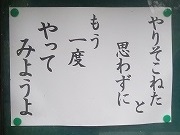 やりそこねた
と
思わずに
もう
一度
やって
みようよ